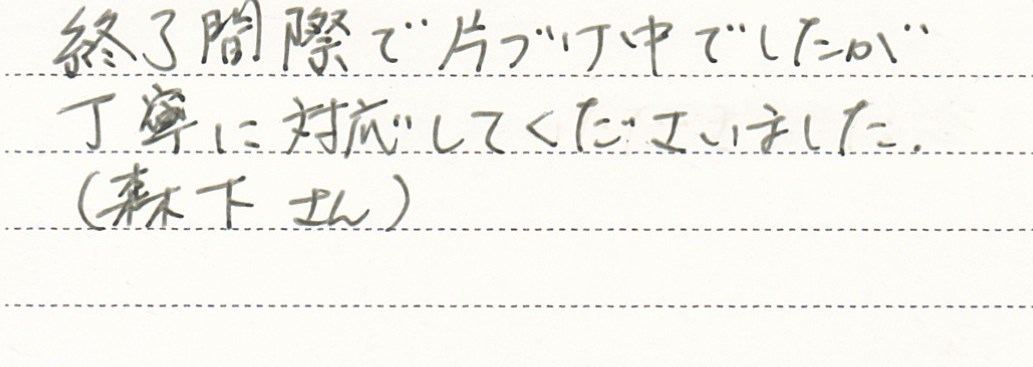 終了間際で片づけ中でしたが
丁寧に対応してくださいました.
(森下 さん)